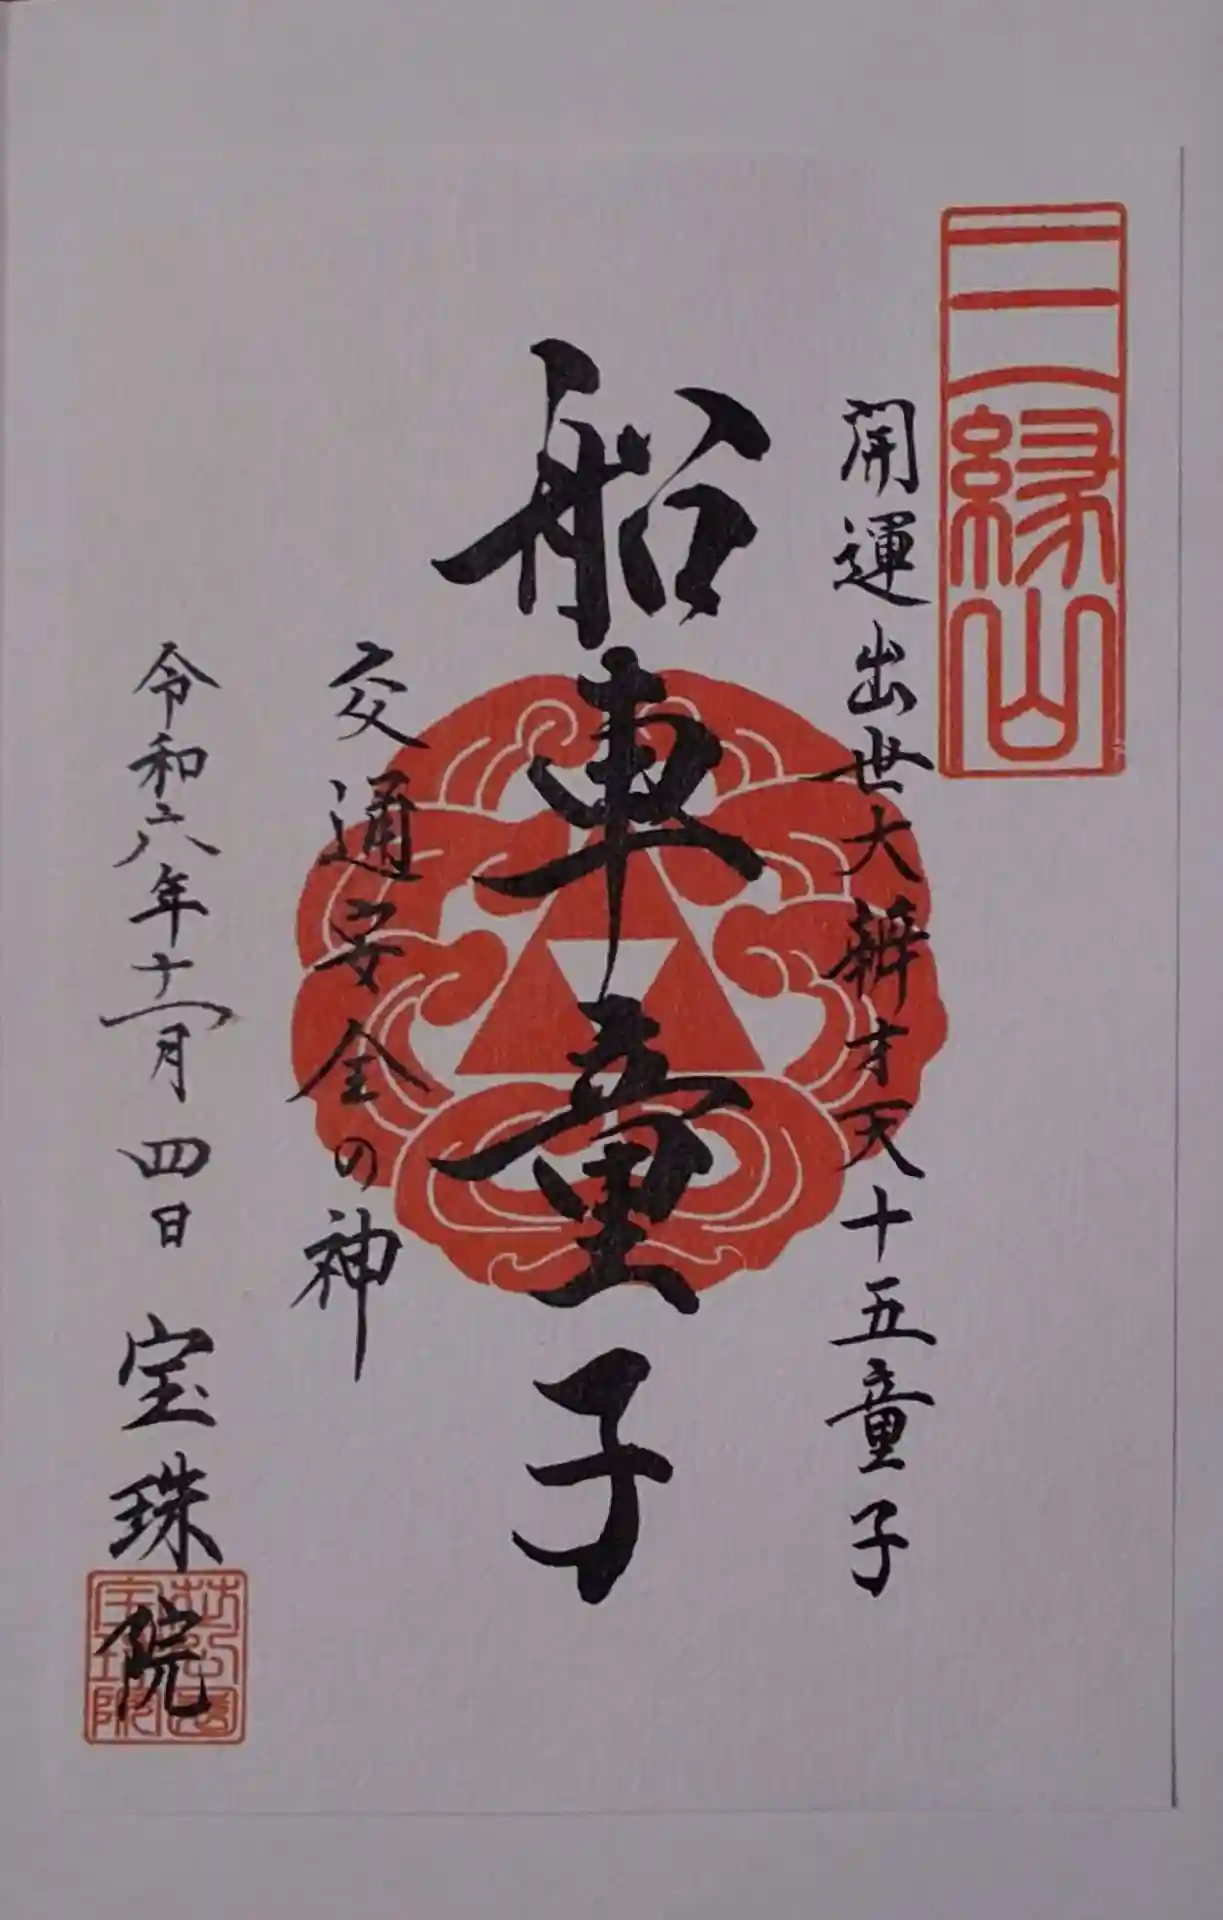 三縁山
開運出世大辨才天十五童子
船車童子
交通安全の神
令和六年十一月四日 宝珠院